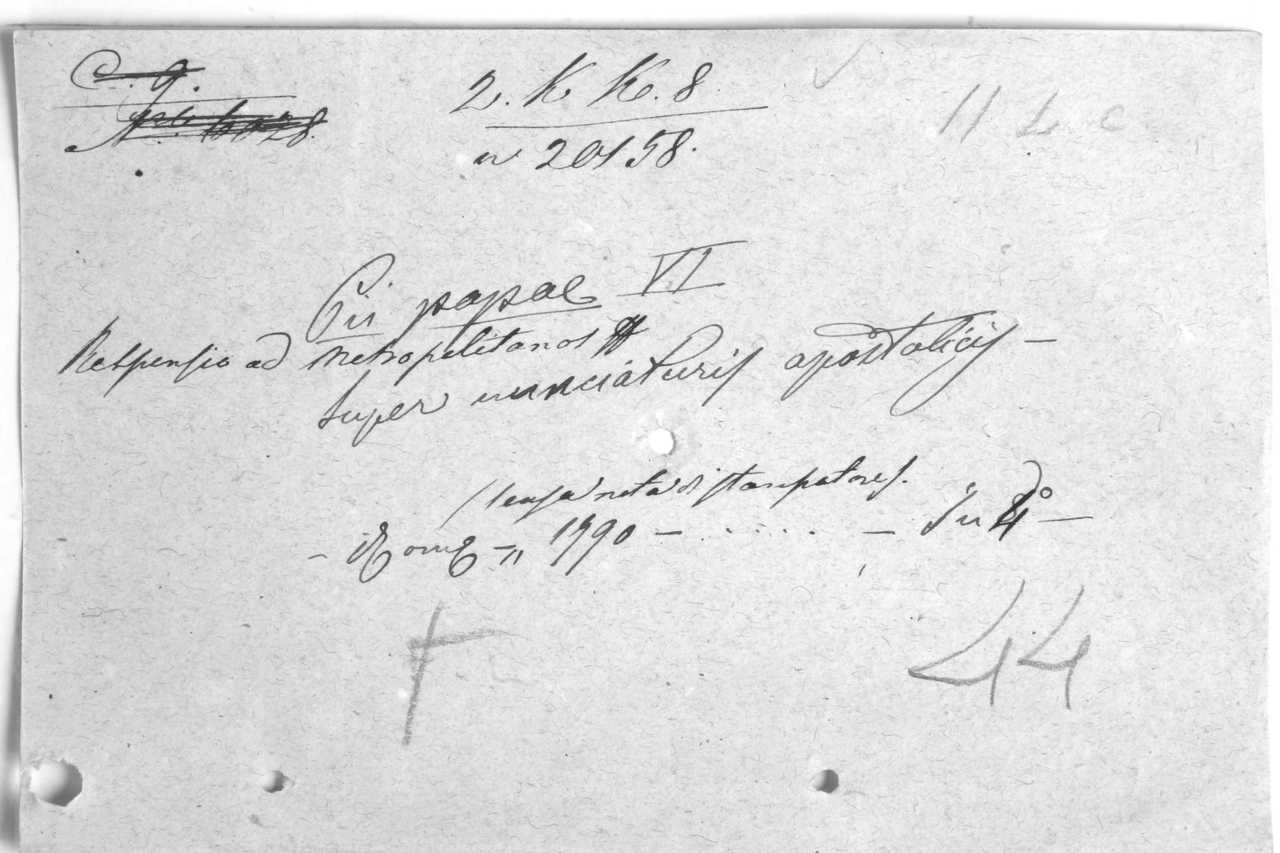 C. 9.
2. K K. 8.
n 20158.
Pii papae VI
Responsio ad Metropolitanos
super nunciaturis apostolicis —
(senza nota di stampatore).
— Rome — 1790 — ..... — In 4° —
44